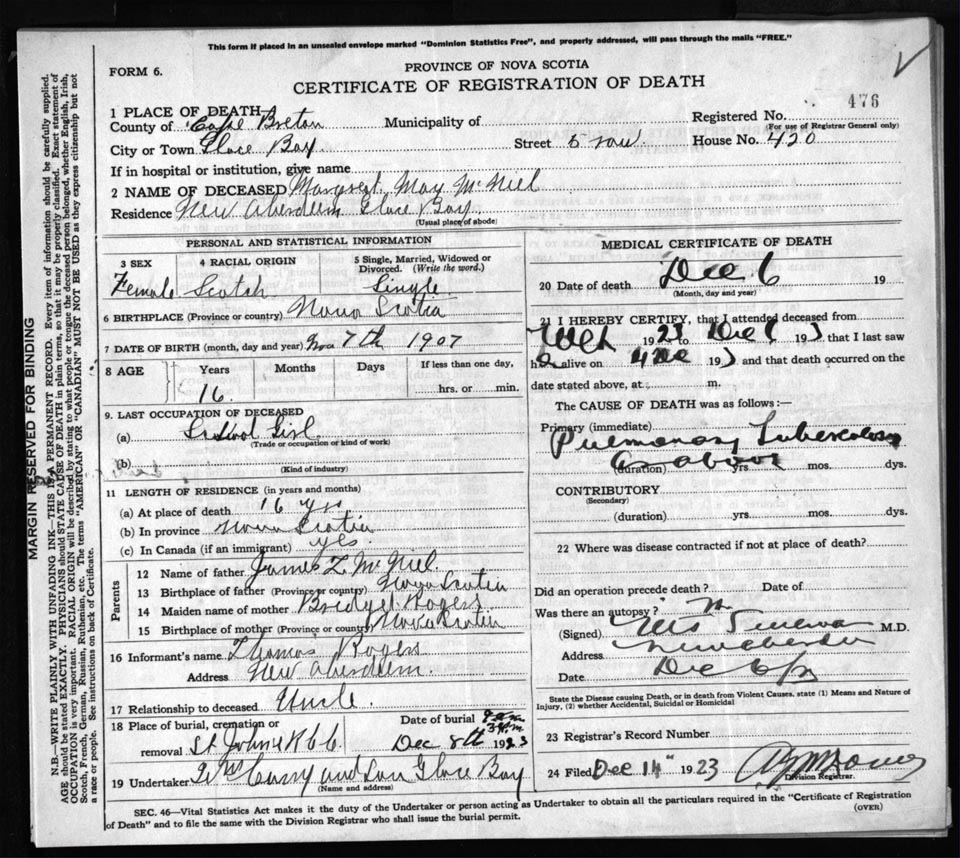 This form if placed in an unsealed envelope marked "Dominion Statistics Free", and properly addressed, will pass through the mails "FREE."
FORM 6.
PROVINCE OF NOVA SCOTIA
CERTIFICATE OF REGISTRATION OF DEATH
476
1 PLACE OF DEATH—
County of Cape Breton Municipality of Registered No.
(For use of Registrar General only)
City or Town Glace Bay Street 5 row House No. 420
If in hospital or institution, give name
2 NAME OF DECEASED Margret May McNiel
Residence New Aberdeen Glace Bay
(Usual place of abode)
PERSONAL AND STATISTICAL INFORMATION
3 SEX 4 RACIAL ORIGIN 5 Single, Married, Widowed or Divorced. (Write the word.)
Female Scotch Single
6 BIRTHPLACE (Province or country) Nova Scotia
7 DATE OF BIRTH (month, day and year) Nov 7th 1907
8 AGE Years Months Days If less than one day,
16 hrs. or min.
9. LAST OCCUPATION OF DECEASED
(a) School Girl
(Trade or occupation or kind of work)
(b)
(Kind of industry)
11 LENGTH OF RESIDENCE (in years and months)
(a) At place of death 16 yrs
(b) In province Nova Scotia
(c) In Canada (if an immigrant) yes
Parents
12 Name of father James Z McNiel
13 Birthplace of father (Province or country) Nova Scotia
14 Maiden name of mother Bridget Rogers
15 Birthplace of mother (Province or country) Nova Scotia
16 Informant's name Thomas Rogers
Address New Aberdeen
17 Relationship to deceased Uncle
18 Place of burial, cremation or removal St Johns
Date of burial
Dec 8th 1923
19 Undertaker and Son Glace Bay
(Name and address)
MEDICAL CERTIFICATE OF DEATH
20 Date of death Dec 6 19
(Month, day and year)
21 I HEREBY CERTIFY, that I attended deceased from
1923 to Dec 6 19 that I last saw
h alive on 4 Dec 19 and that death occurred on the
date stated above, at m.
The CAUSE OF DEATH was as follows:—
Primary (immediate)
Pulmonary Tuberculosis
(duration) yrs. mos. dys.
above
CONTRIBUTORY
(Secondary)
(duration) yrs. mos. dys.
22 Where was disease contracted if not at place of death?
Did an operation precede death? Date of
Was there an autopsy?
(Signed) M.D.
Address
Date Dec 6
State the Disease causing Death, or in death from Violent Causes, state (1) Means and Nature of
Injury, (2) whether Accidental, Suicidal or Homicidal
23 Registrar's Record Number
24 Filed Dec 14 1923
Division Registrar.
SEC. 46—Vital Statistics Act makes it the duty of the Undertaker or person acting as Undertaker to obtain all the particulars required in the "Certificate of Registration
of Death" and to file the same with the Division Registrar who shall issue the burial permit.
(OVER)
MARGIN RESERVED FOR BINDING
N.B.—WRITE PLAINLY WITH UNFADING INK—THIS IS A PERMANENT RECORD. Every item of information should be carefully supplied.
AGE should be stated EXACTLY. PHYSICIANS should STATE CAUSE OF DEATH in plain terms, so that it may be properly classified. Exact statement of
OCCUPATION is very important. RACIAL ORIGIN will be described by stating to what people or tongue the deceased person belonged, whether English, Irish,
Scotch, French, German, Russian, Ruthenian, etc. The terms "AMERICAN" or "CANADIAN" MUST NOT BE USED as they express citizenship but not
a race or people. See instructions on back of Certificate.